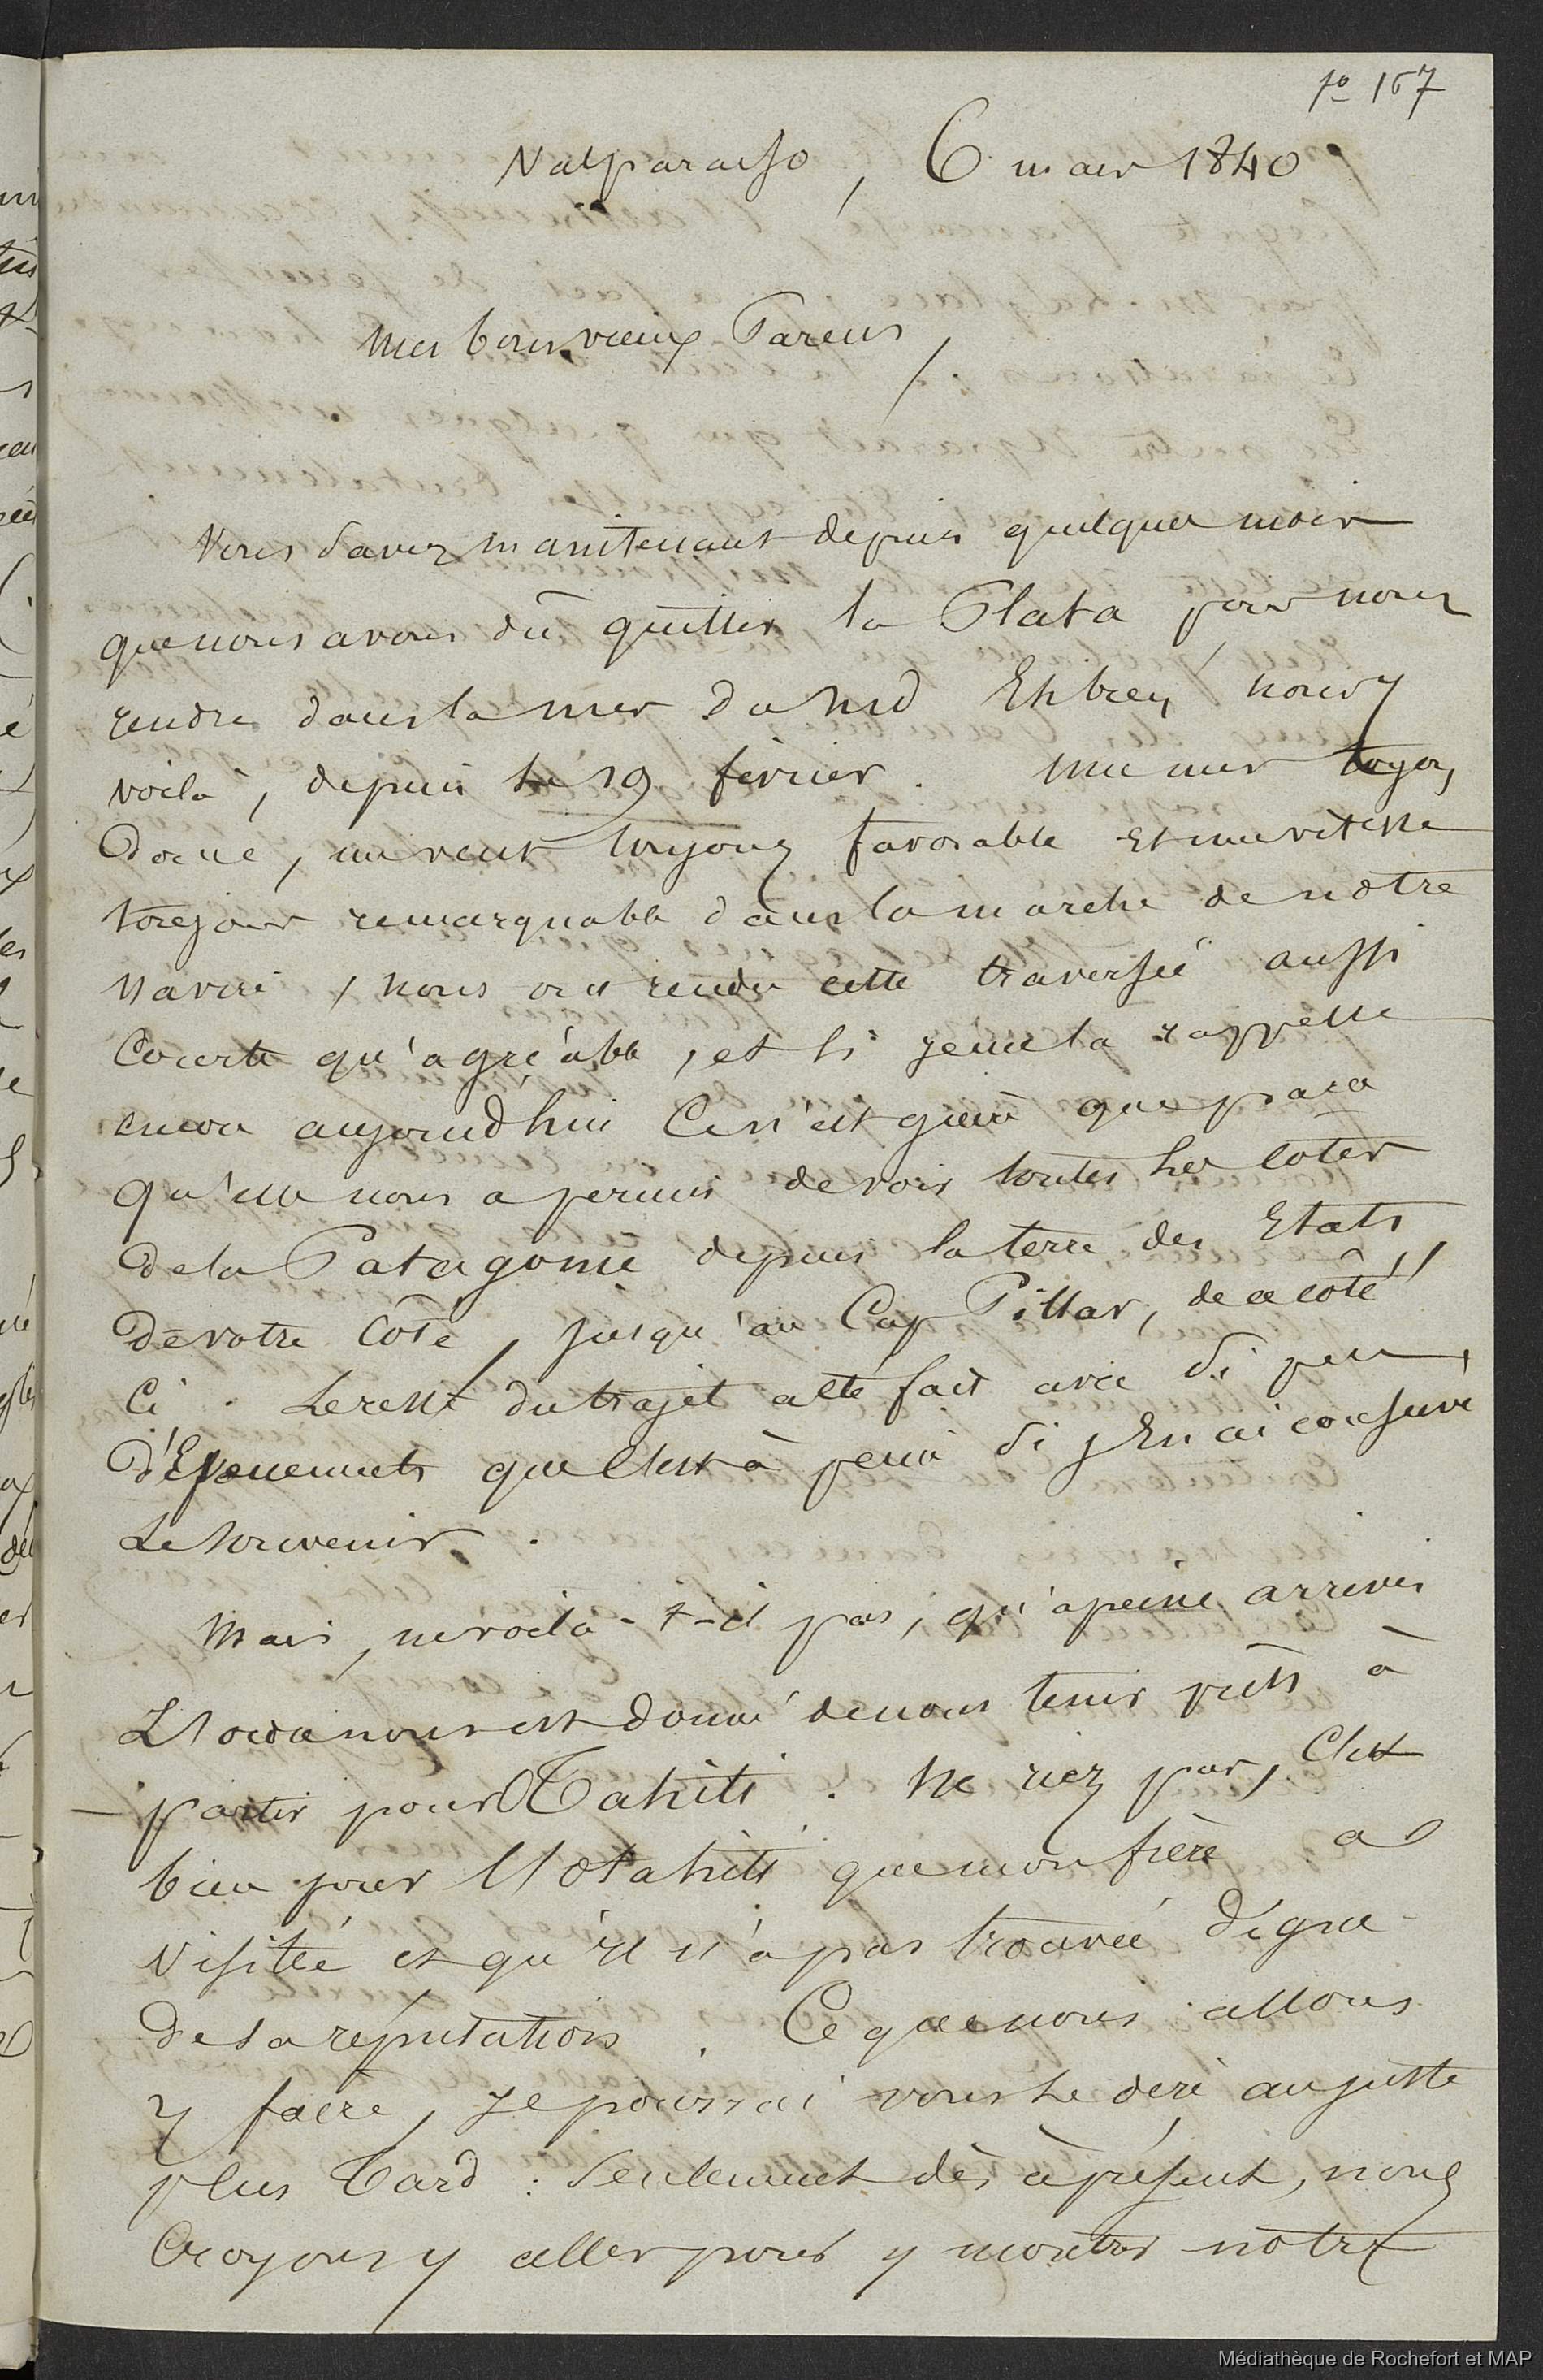 fo 167
Valparaiso, 6 mars 1840
Mes bons vieux Parens,
Vous savez maintenant depuis quelques mois
que nous avons dû quitter la Plata pour nous
rendre dans la mer du Sud Eh bien, nous y
voilà, depuis le 19 février. Une mer toujours
douce, un vent toujours favorable et une vitesse
toujours remarquable dans la marche de notre
navire, nous ont rendu cette traversée aussi
courte qu'agréable, et si je me la rappelle
encore aujourd'hui ce n'est guère que parce
qu'elle nous a permis de voir toutes les côtes
de la Patagonie depuis la terre des Etats,
de votre côté, jusqu'au Cap Pillar, de ce côté
ci. Le reste du trajet a été fait avec si peu
d'Evénements que c'est à peine si j'en ai conservé
le souvenir.
Mais, ne voilà-t-il pas, qu'à peine arrivés
L'ordre nous est donné de nous tenir prêts à
partir pour Tahiti. Ne riez pas, c'est
bien pour l'Otahiti que mon frère a
visitée et qu'il n'a pas trouvée digne
de sa réputation. Ce que nous allons
y faire, je pourrai vous le dire au juste
plus tard : seulement dès à présent, nous
croyons y aller pour y montrer notre
Médiathèque de Rochefort et MAP